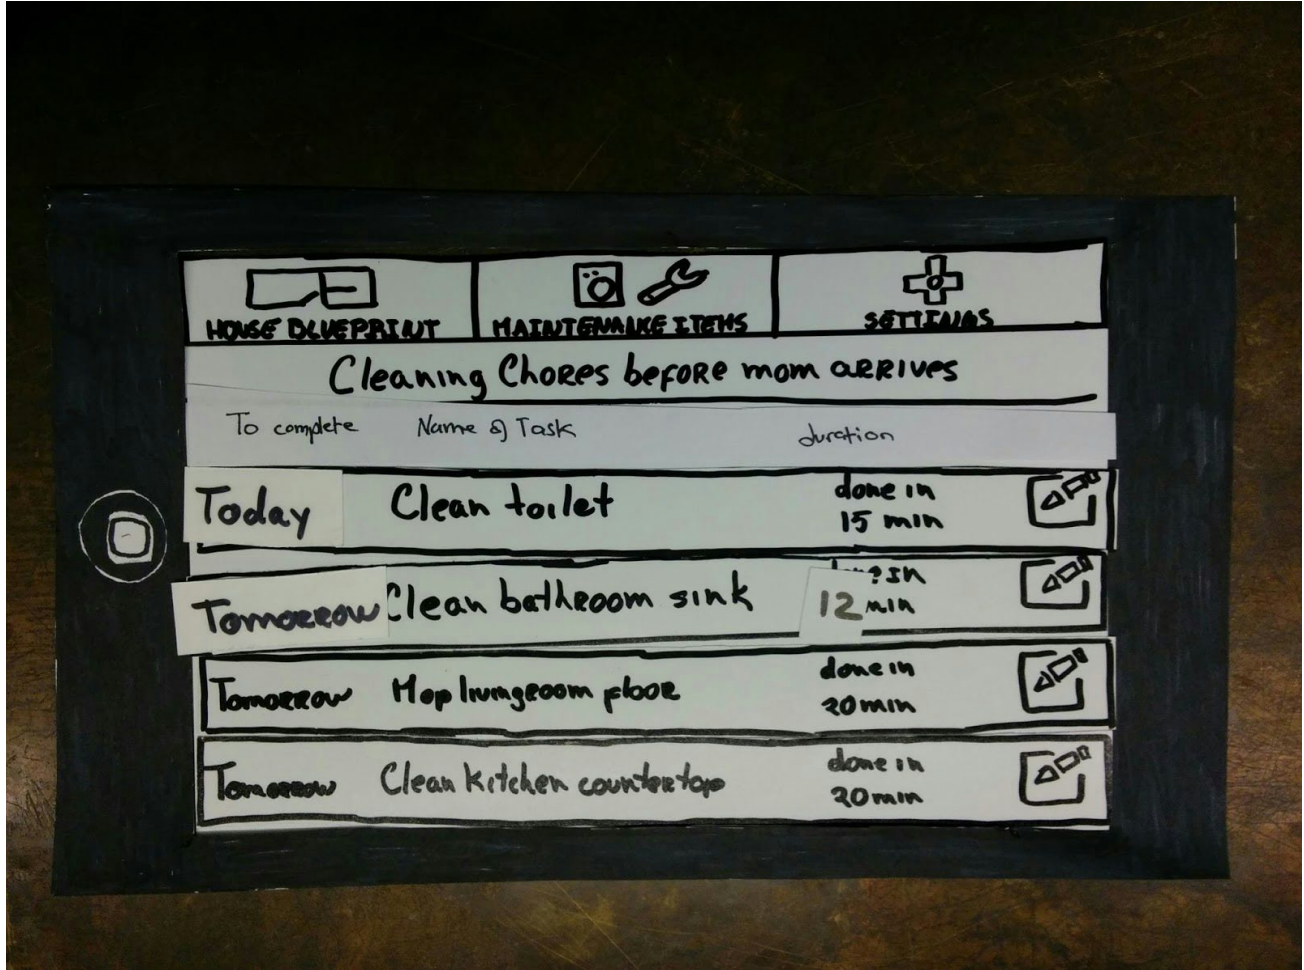 HOUSE BLUEPRINT
MAINTENANCE ITEMS
SETTINGS
Cleaning Chores before mom arrives
To complete Name of Task duration
Today Clean toilet done in
15 min
Tomorrow Clean bathroom sink
12 min
Tomorrow Mop livingroom floor done in
20 min
Tomorrow Clean kitchen countertop done in
20 min